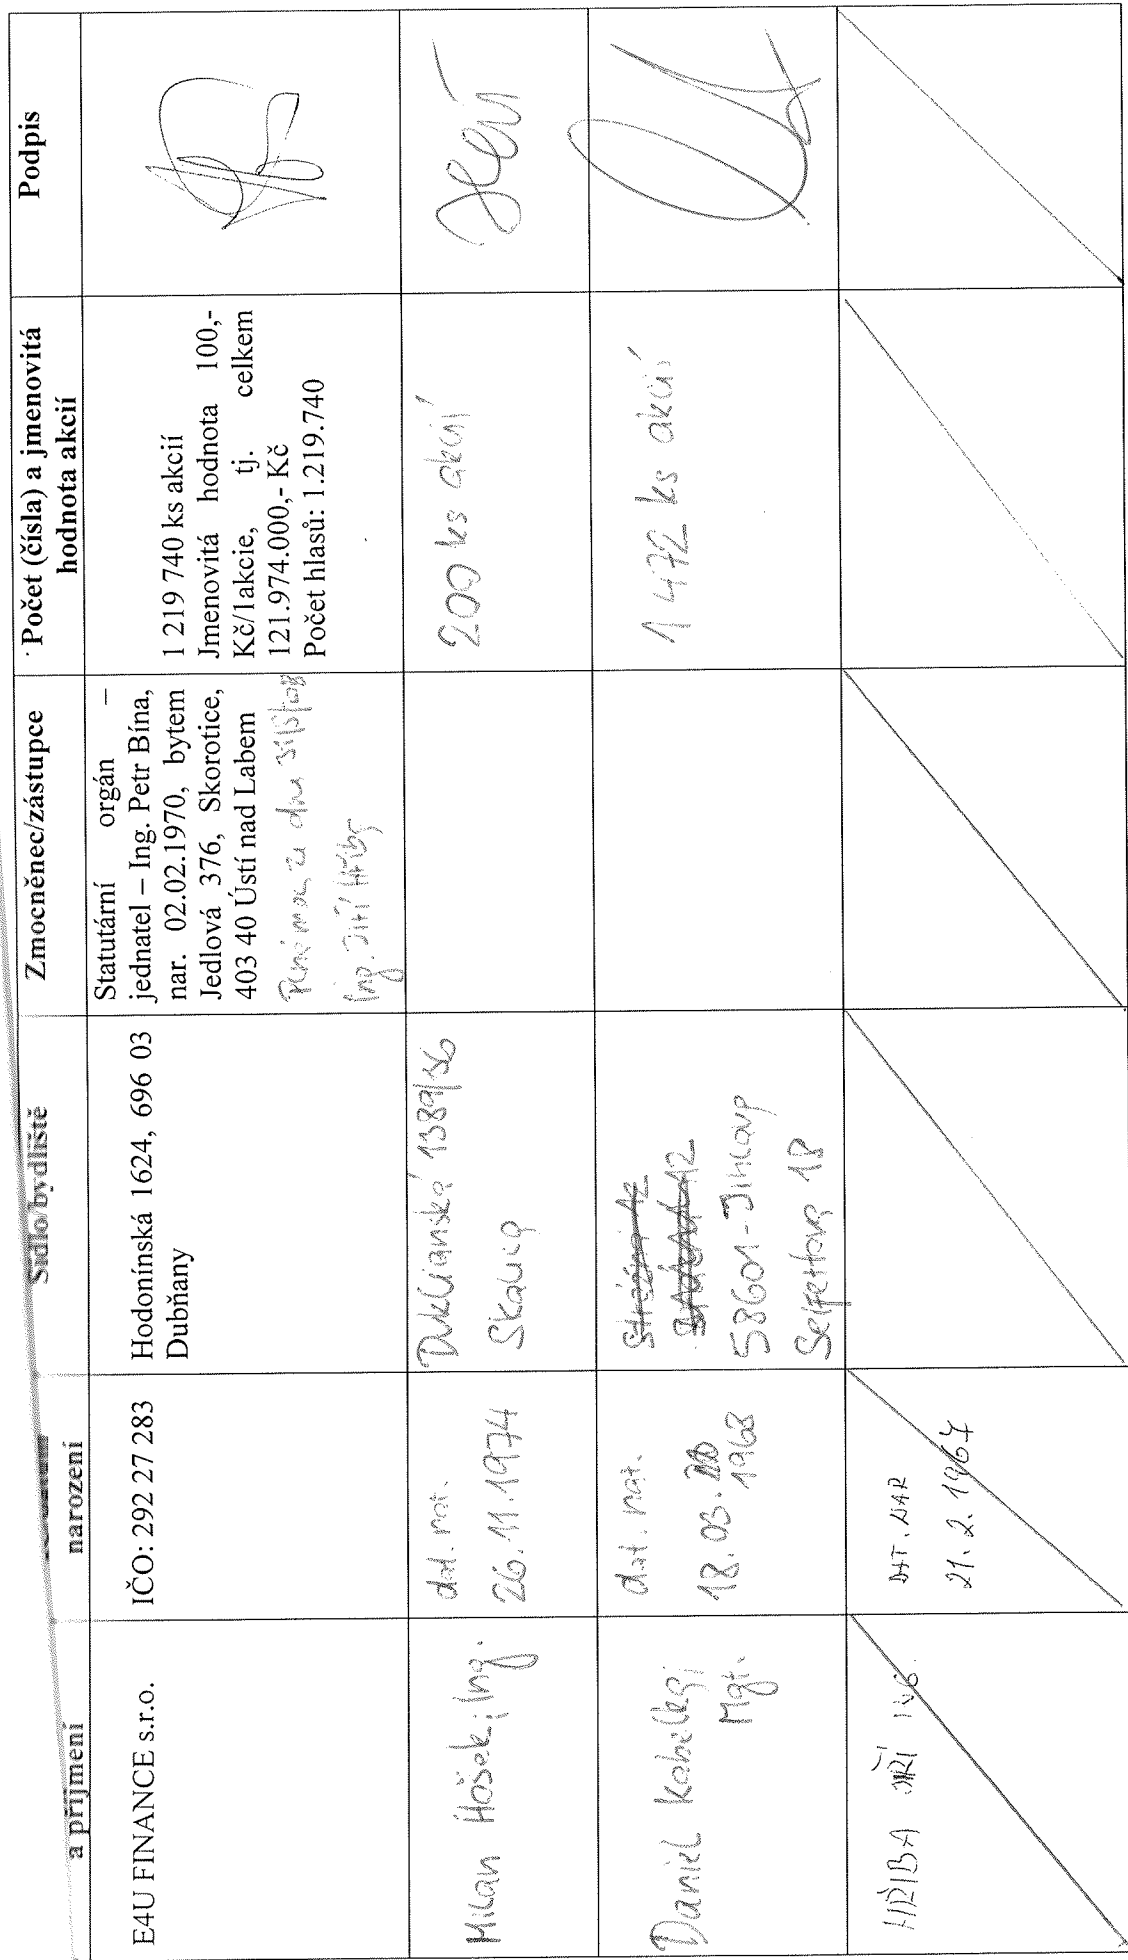 a příjmení
narození
Sídlo/bydliště
Zmocněnec/zástupce
Počet (čísla) a jmenovitá
hodnota akcií
Podpis
E4U FINANCE s.r.o.
IČO: 292 27 283
Hodonínská 1624, 696 03
Dubňany
Statutární orgán –
jednatel – Ing. Petr Bína,
nar. 02.02.1970, bytem
Jedlová 376, Skorotice,
403 40 Ústí nad Labem
Plná moc ze dne
Ing. Jiří Hřiba
1 219 740 ks akcií
Jmenovitá hodnota 100,-
Kč/1akcie, tj. celkem
121.974.000,- Kč
Počet hlasů: 1.219.740
Milan Hošek, Ing.
dat. nar.
26.11.1974
Dukelianská 1389/56
Skalica
200 ks akcií
Daniel
Mgr.
dat. nar.
18.03.
1968
58601 - Jihlava
Seifertova 18
1 472 ks akcií
HŘIBA JIŘÍ ING.
DAT. NAR
21.2.1967